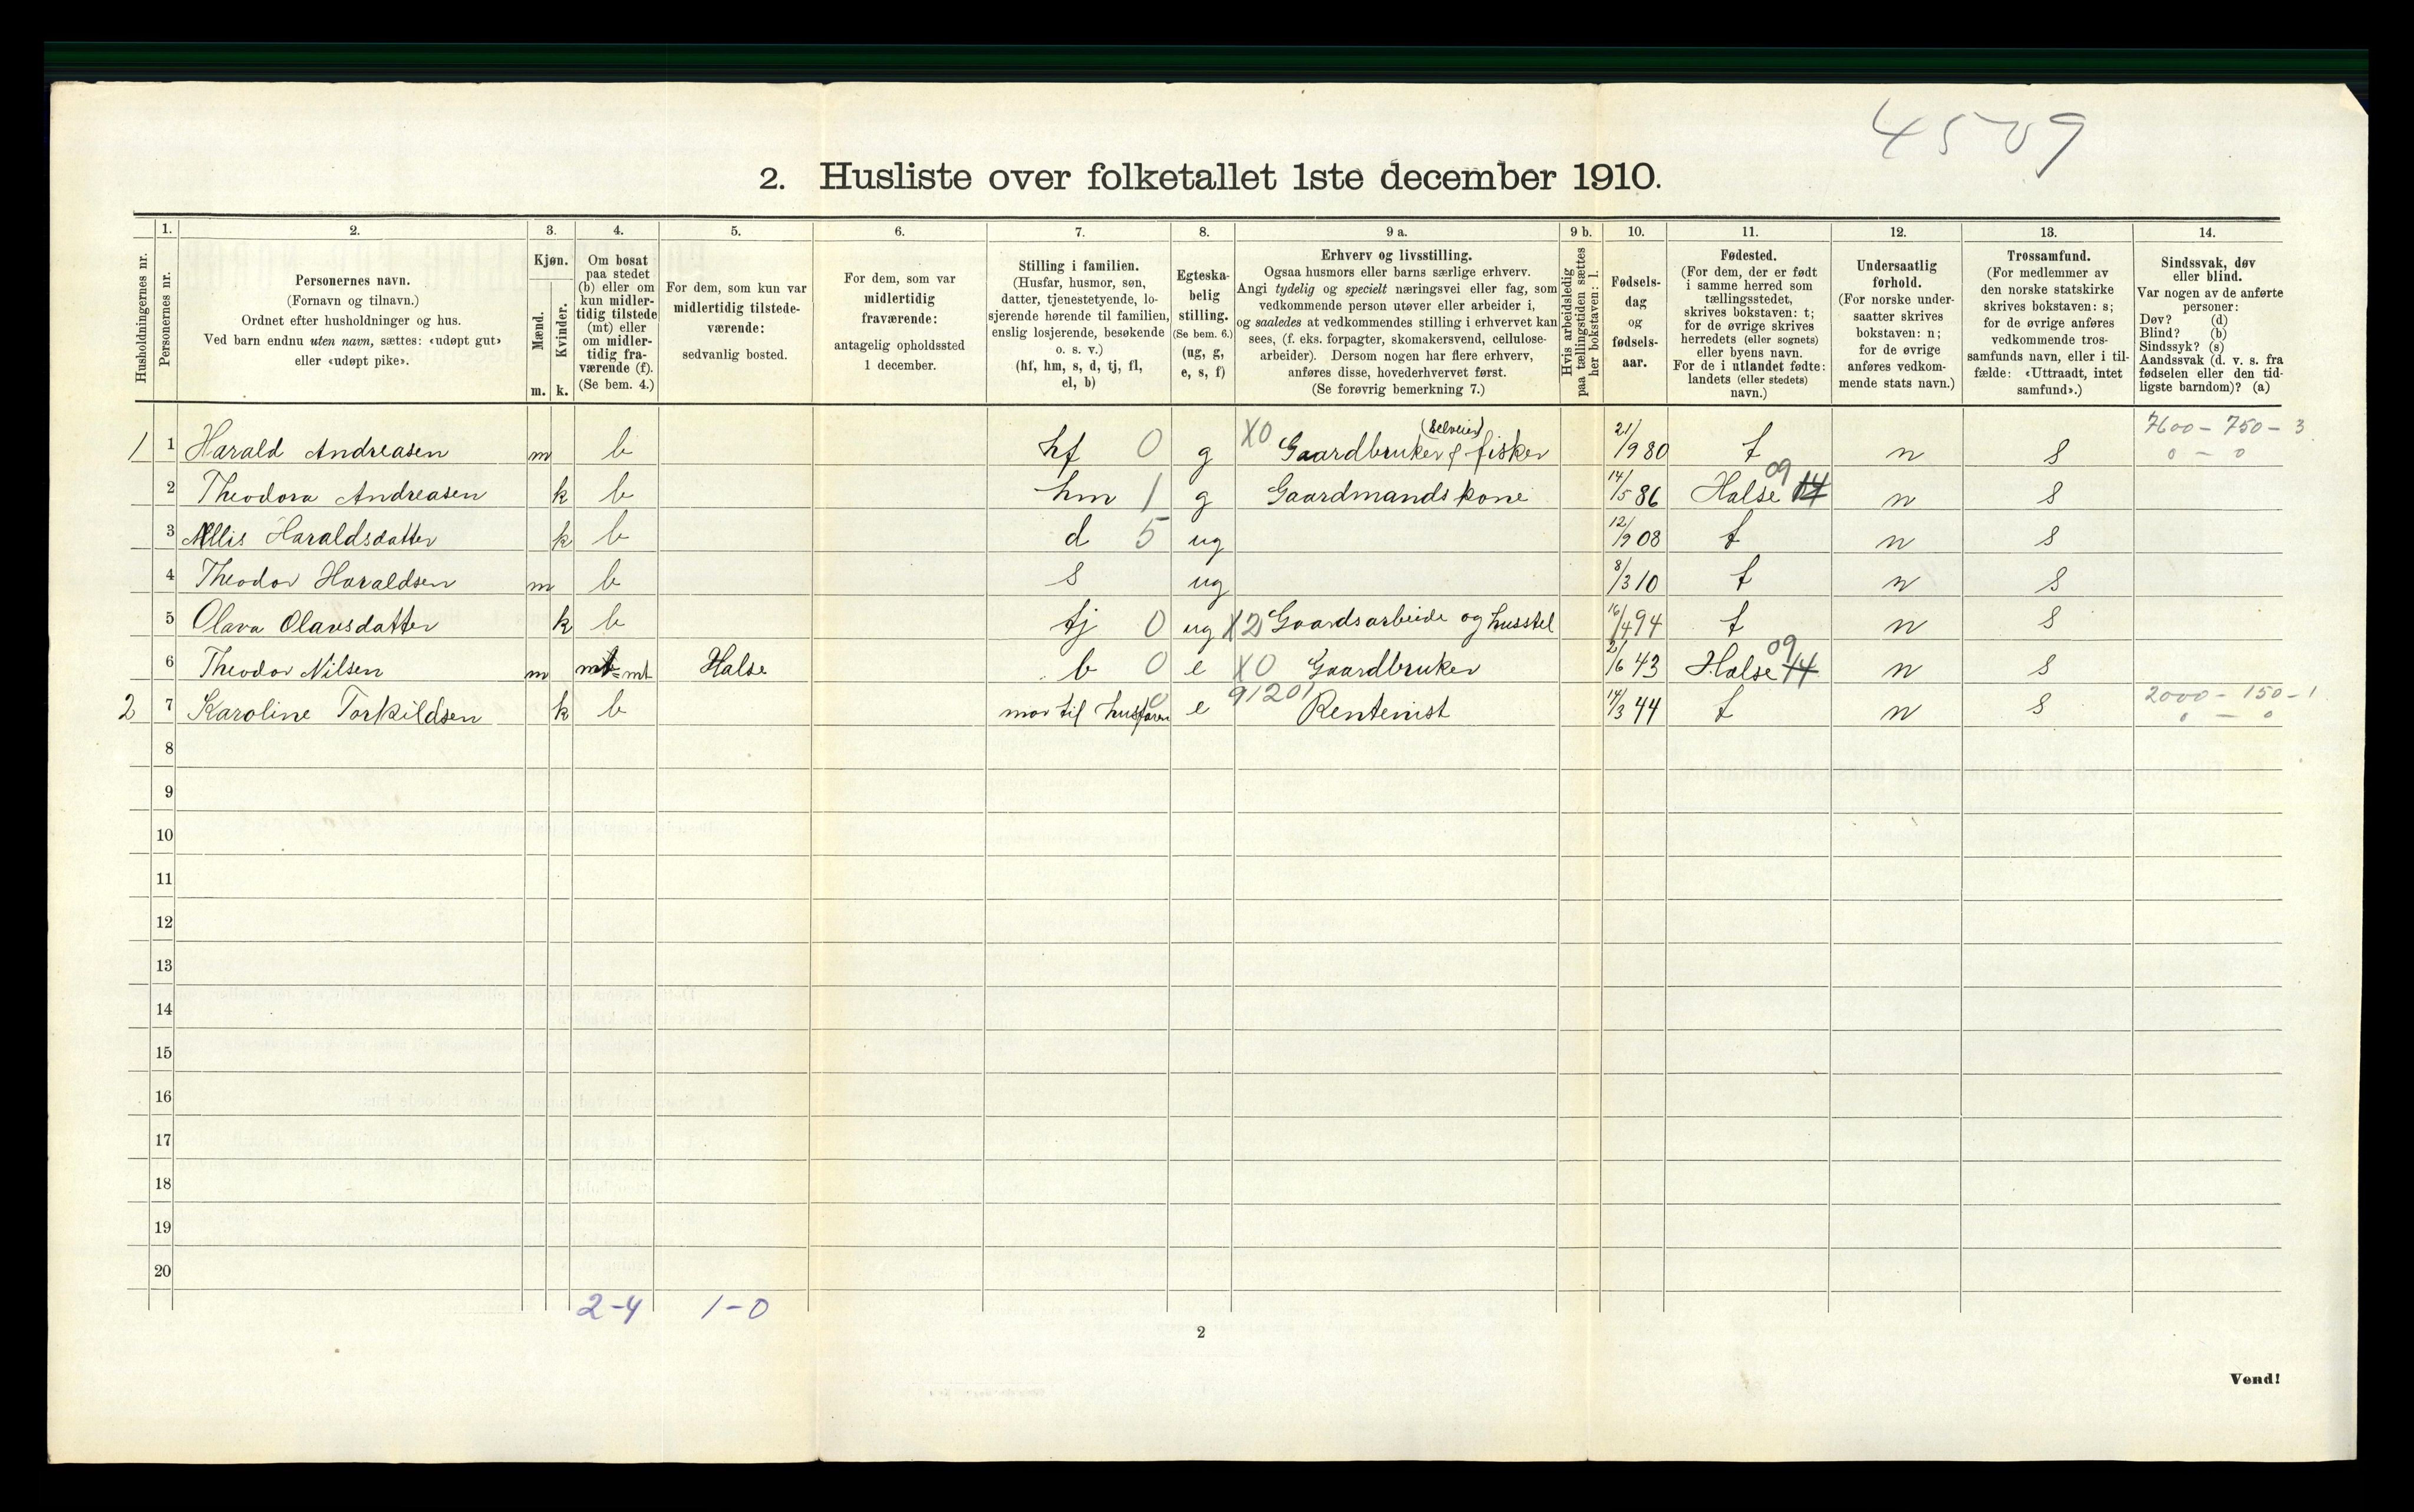 4509
2. Husliste over folketallet 1ste december 1910.
Husholdningernes nr.
1.
Personernes nr.
2.
Personernes navn.
(Fornavn og tilnavn.)
Ordnet efter husholdninger og hus.
Ved barn endnu uten navn, sættes: «udøpt gut»
eller «udøpt pike».
3.
Kjøn.
Mænd.
Kvinder.
m. k.
4.
Om bosat
paa stedet
(b) eller om
kun midler-
tidig tilstede
(mt) eller
om midler-
tidig fra-
værende (f).
(Se bem. 4.)
5.
For dem, som kun var
midlertidig tilstede-
værende:
sedvanlig bosted.
6.
For dem, som var
midlertidig
fraværende:
antagelig opholdssted
1 december.
7.
Stilling i familien.
(Husfar, husmor, søn,
datter, tjenestetyende, lo-
sjerende hørende til familien,
enslig losjerende, besøkende
o. s. v.)
(hf, hm, s, d, tj, fl,
el, b)
8.
Egteska-
belig
stilling.
(Se bem. 6.)
(ug, g,
e, s, f)
9 a.
Erhverv og livsstilling.
Ogsaa husmors eller barns særlige erhverv.
Angi tydelig og specielt næringsvei eller fag, som
vedkommende person utøver eller arbeider i,
og saaledes at vedkommendes stilling i erhvervet kan
sees, (f. eks. forpagter, skomakersvend, cellulose-
arbeider). Dersom nogen har flere erhverv,
anføres disse, hovederhvervet først.
(Se forøvrig bemerkning 7.)
9 b.
Hvis arbeidsledig
paa tællingstiden sættes
her bokstaven: l.
10.
Fødsels-
dag
og
fødsels-
aar.
11.
Fødested.
(For dem, der er født
i samme herred som
tællingsstedet,
skrives bokstaven: t;
for de øvrige skrives
herredets (eller sognets)
eller byens navn.
For de i utlandet fødte:
landets (eller stedets)
navn.)
12.
Undersaatlig
forhold.
(For norske under-
saatter skrives
bokstaven: n;
for de øvrige
anføres vedkom-
mende stats navn.)
13.
Trossamfund.
(For medlemmer av
den norske statskirke
skrives bokstaven: s;
for de øvrige anføres
vedkommende tros-
samfunds navn, eller i til-
fælde: «Uttraadt, intet
samfund».)
14.
Sindssvak, døv
eller blind.
Var nogen av de anførte
personer:
Døv? (d)
Blind? (b)
Sindssyk? (s)
Aandssvak (d. v. s. fra
fødselen eller den tid-
ligste barndom)? (a)
1 1 Harald Andreasen m b hf 0 g X0 Gaardbruker (selveier) & fisker 21/9 80 t n s 7600 - 750 - 3 0 - 0
2 Theodora Andreasen k b hm 1 g Gaardmandskone 14/5 86 Halse 09 14 n s
3 Allis Haraldsdatter k b d 5 ug 12/9 08 t n s
4 Theodor Haraldsen m b s ug 8/3 10 t n s
5 Olava Olausdatter k b tj 0 ug X2 Gaardsarbeide og husstel 16/4 94 t n s
6 Theodor Nilsen m mt Halse b 0 e X0 Gaardbruker 2/6 43 Halse 09 14 n s
2 7 Karoline Torkildsen k b mor til husfaren 0 e 91201 Rentenist 14/3 44 t n s 2000 - 150 - 1 0 - 0
8
9
10
11
12
13
14
15
16
17
18
19
20
2-4 1-0
2
Vend!